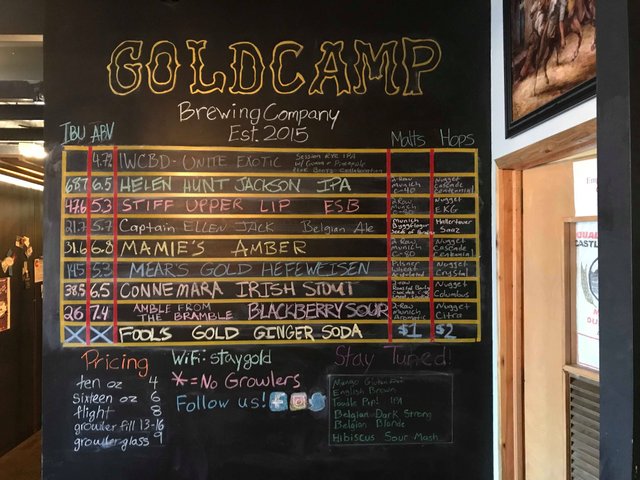 GOLDCAMP
Brewing Company
Est. 2015
IBU ABV Malts Hops
4.7% IWCBD - UNITE EXOTIC Session RYE IPA
68.7 6.5 HELEN HUNT JACKSON IPA 2-Row Munich C-40 Nugget Cascade Centennial
47.6 5.3 STIFF UPPER LIP ESB 2-Row Munich Nugget EKG
21.7 5.7 Captain ELLEN JACK Belgian Ale Munich Hallertauer Saaz
31.6 6.8 MAMIE'S AMBER 2-Row Munich C-80 Nugget Cascade Centennial
14.5 5.3 MEAR'S GOLD HEFEWEISEN Pilsner Wheat Acidulated Nugget Crystal
38.5 6.5 CONNEMARA IRISH STOUT 2-row Nugget Columbus
26 7.4 AMBLE FROM THE BRAMBLE BLACKBERRY SOUR 2-Row Munich Aromatic Nugget Citra
X X FOOL'S GOLD GINGER SODA $1 $2
Pricing
ten oz 4
sixteen oz 6
flight 8
growler fill 13-16
growler glass 9
Wifi: staygold
* = No Growlers
Follow us!
Stay Tuned!
Mango Gluten Free
English Brown
IPA
Belgian Dark Strong
Belgian Blonde
Hibiscus Sour Mash